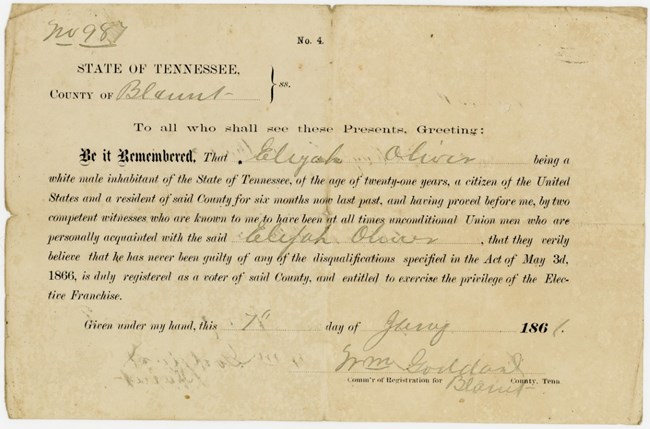 No 987
No. 4.
STATE OF TENNESSEE,
COUNTY OF Blount } ss.
To all who shall see these Presents, Greeting:
Be it Remembered, That Elijah Oliver being a
white male inhabitant of the State of Tennessee, of the age of twenty-one years, a citizen of the United
States and a resident of said County for six months now last past, and having proved before me, by two
competent witnesses, who are known to me to have been at all times unconditional Union men who are
personally acquainted with the said Elijah Oliver, that they verily
believe that he has never been guilty of any of the disqualifications specified in the Act of May 3d,
1866, is duly registered as a voter of said County, and entitled to exercise the privilege of the Elec-
tive Franchise.
Given under my hand, this 7th day of Jany 186
Wm Goddard
Comm'r of Registration for Blount County, Tenn